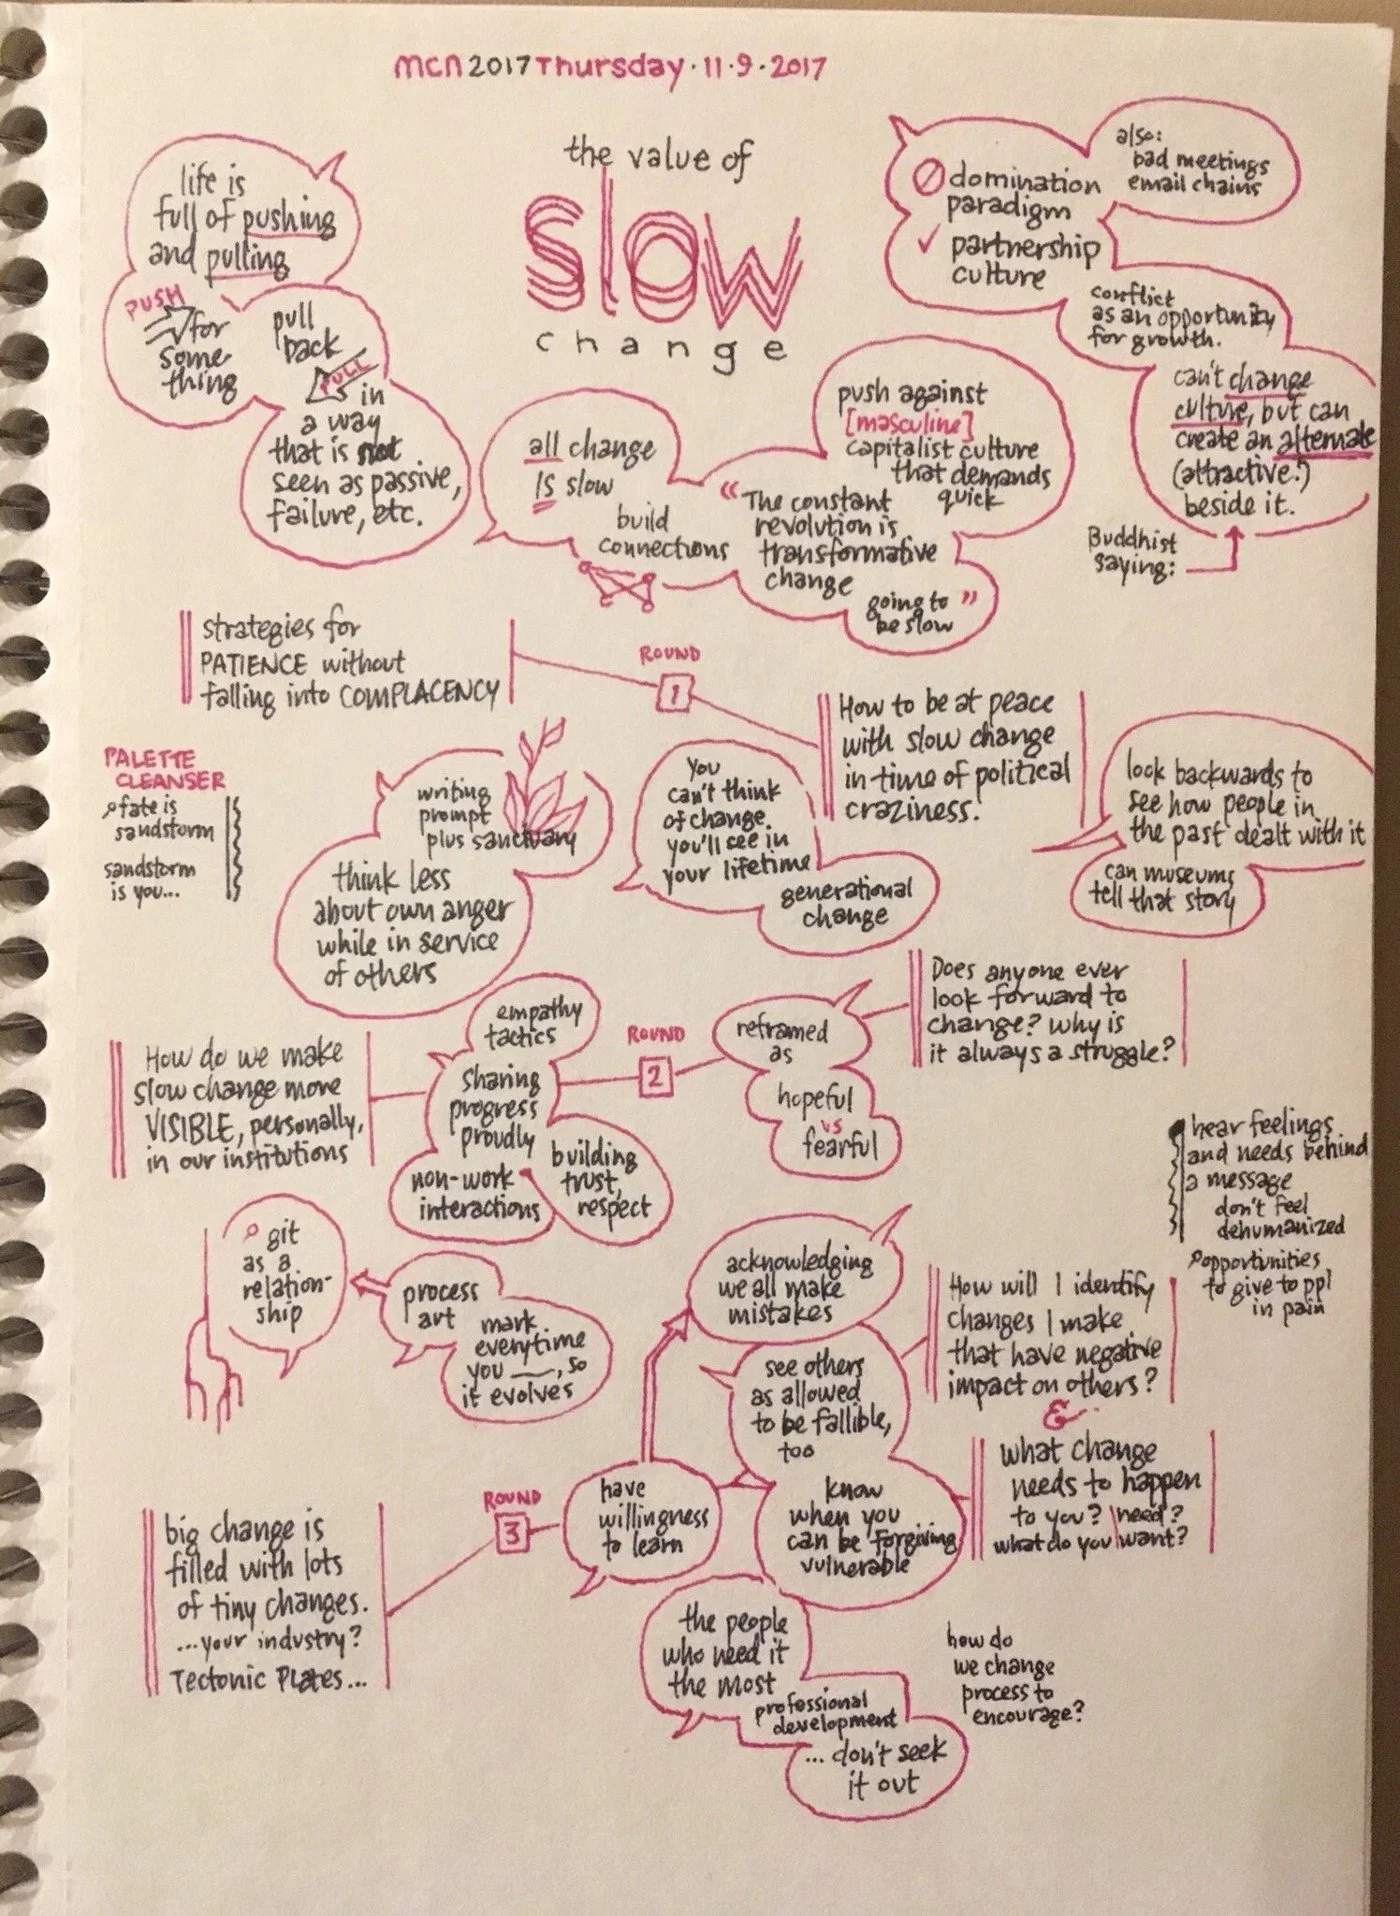 mcn2017Thursday·11·9·2017
the value of
slow
change
life is
full of pushing
and pulling
PUSH
for
some-
thing
pull
back
PULL
in
a way
that is not
seen as passive,
failure, etc.
domination
paradigm
✓ partnership
culture
also:
bad meetings
email chains
conflict
as an opportunity
for growth.
can't change
culture, but can
create an alternate
(attractive!)
beside it.
Buddhist
saying:
all change
IS slow
build
connections
push against
[masculine]
capitalist culture
that demands
quick
"The constant
revolution is
transformative
change
going to "
be slow
strategies for
PATIENCE without
falling into COMPLACENCY
ROUND
1
How to be at peace
with slow change
in time of political
craziness.
PALETTE
CLEANSER
fate is
sandstorm
sandstorm
is you...
writing
prompt
plus sanctuary
think less
about own anger
while in service
of others
you
can't think
of change
you'll see in
your lifetime
generational
change
look backwards to
see how people in
the past dealt with it
can museums
tell that story
How do we make
slow change more
VISIBLE, personally,
in our institutions
empathy
tactics
sharing
progress
proudly
non-work
interactions
building
trust,
respect
ROUND
2
reframed
as
hopeful
vs
fearful
Does anyone ever
look forward to
change? why is
it always a struggle?
hear feelings
and needs behind
a message
don't feel
dehumanized
opportunities
to give to ppl
in pain
git
as a
relation-
ship
process
art
mark
everytime
you ___, so
it evolves
acknowledging
we all make
mistakes
see others
as allowed
to be fallible,
too
know
when you
can be forgiving
vulnerable
How will I identify
changes I make
that have negative
impact on others?
&
what change
needs to happen
to you? need?
what do you want?
ROUND
3
have
willingness
to learn
big change is
filled with lots
of tiny changes.
...your industry?
Tectonic Plates...
the people
who need it
the most
professional
development
... don't seek
it out
how do
we change
process to
encourage?